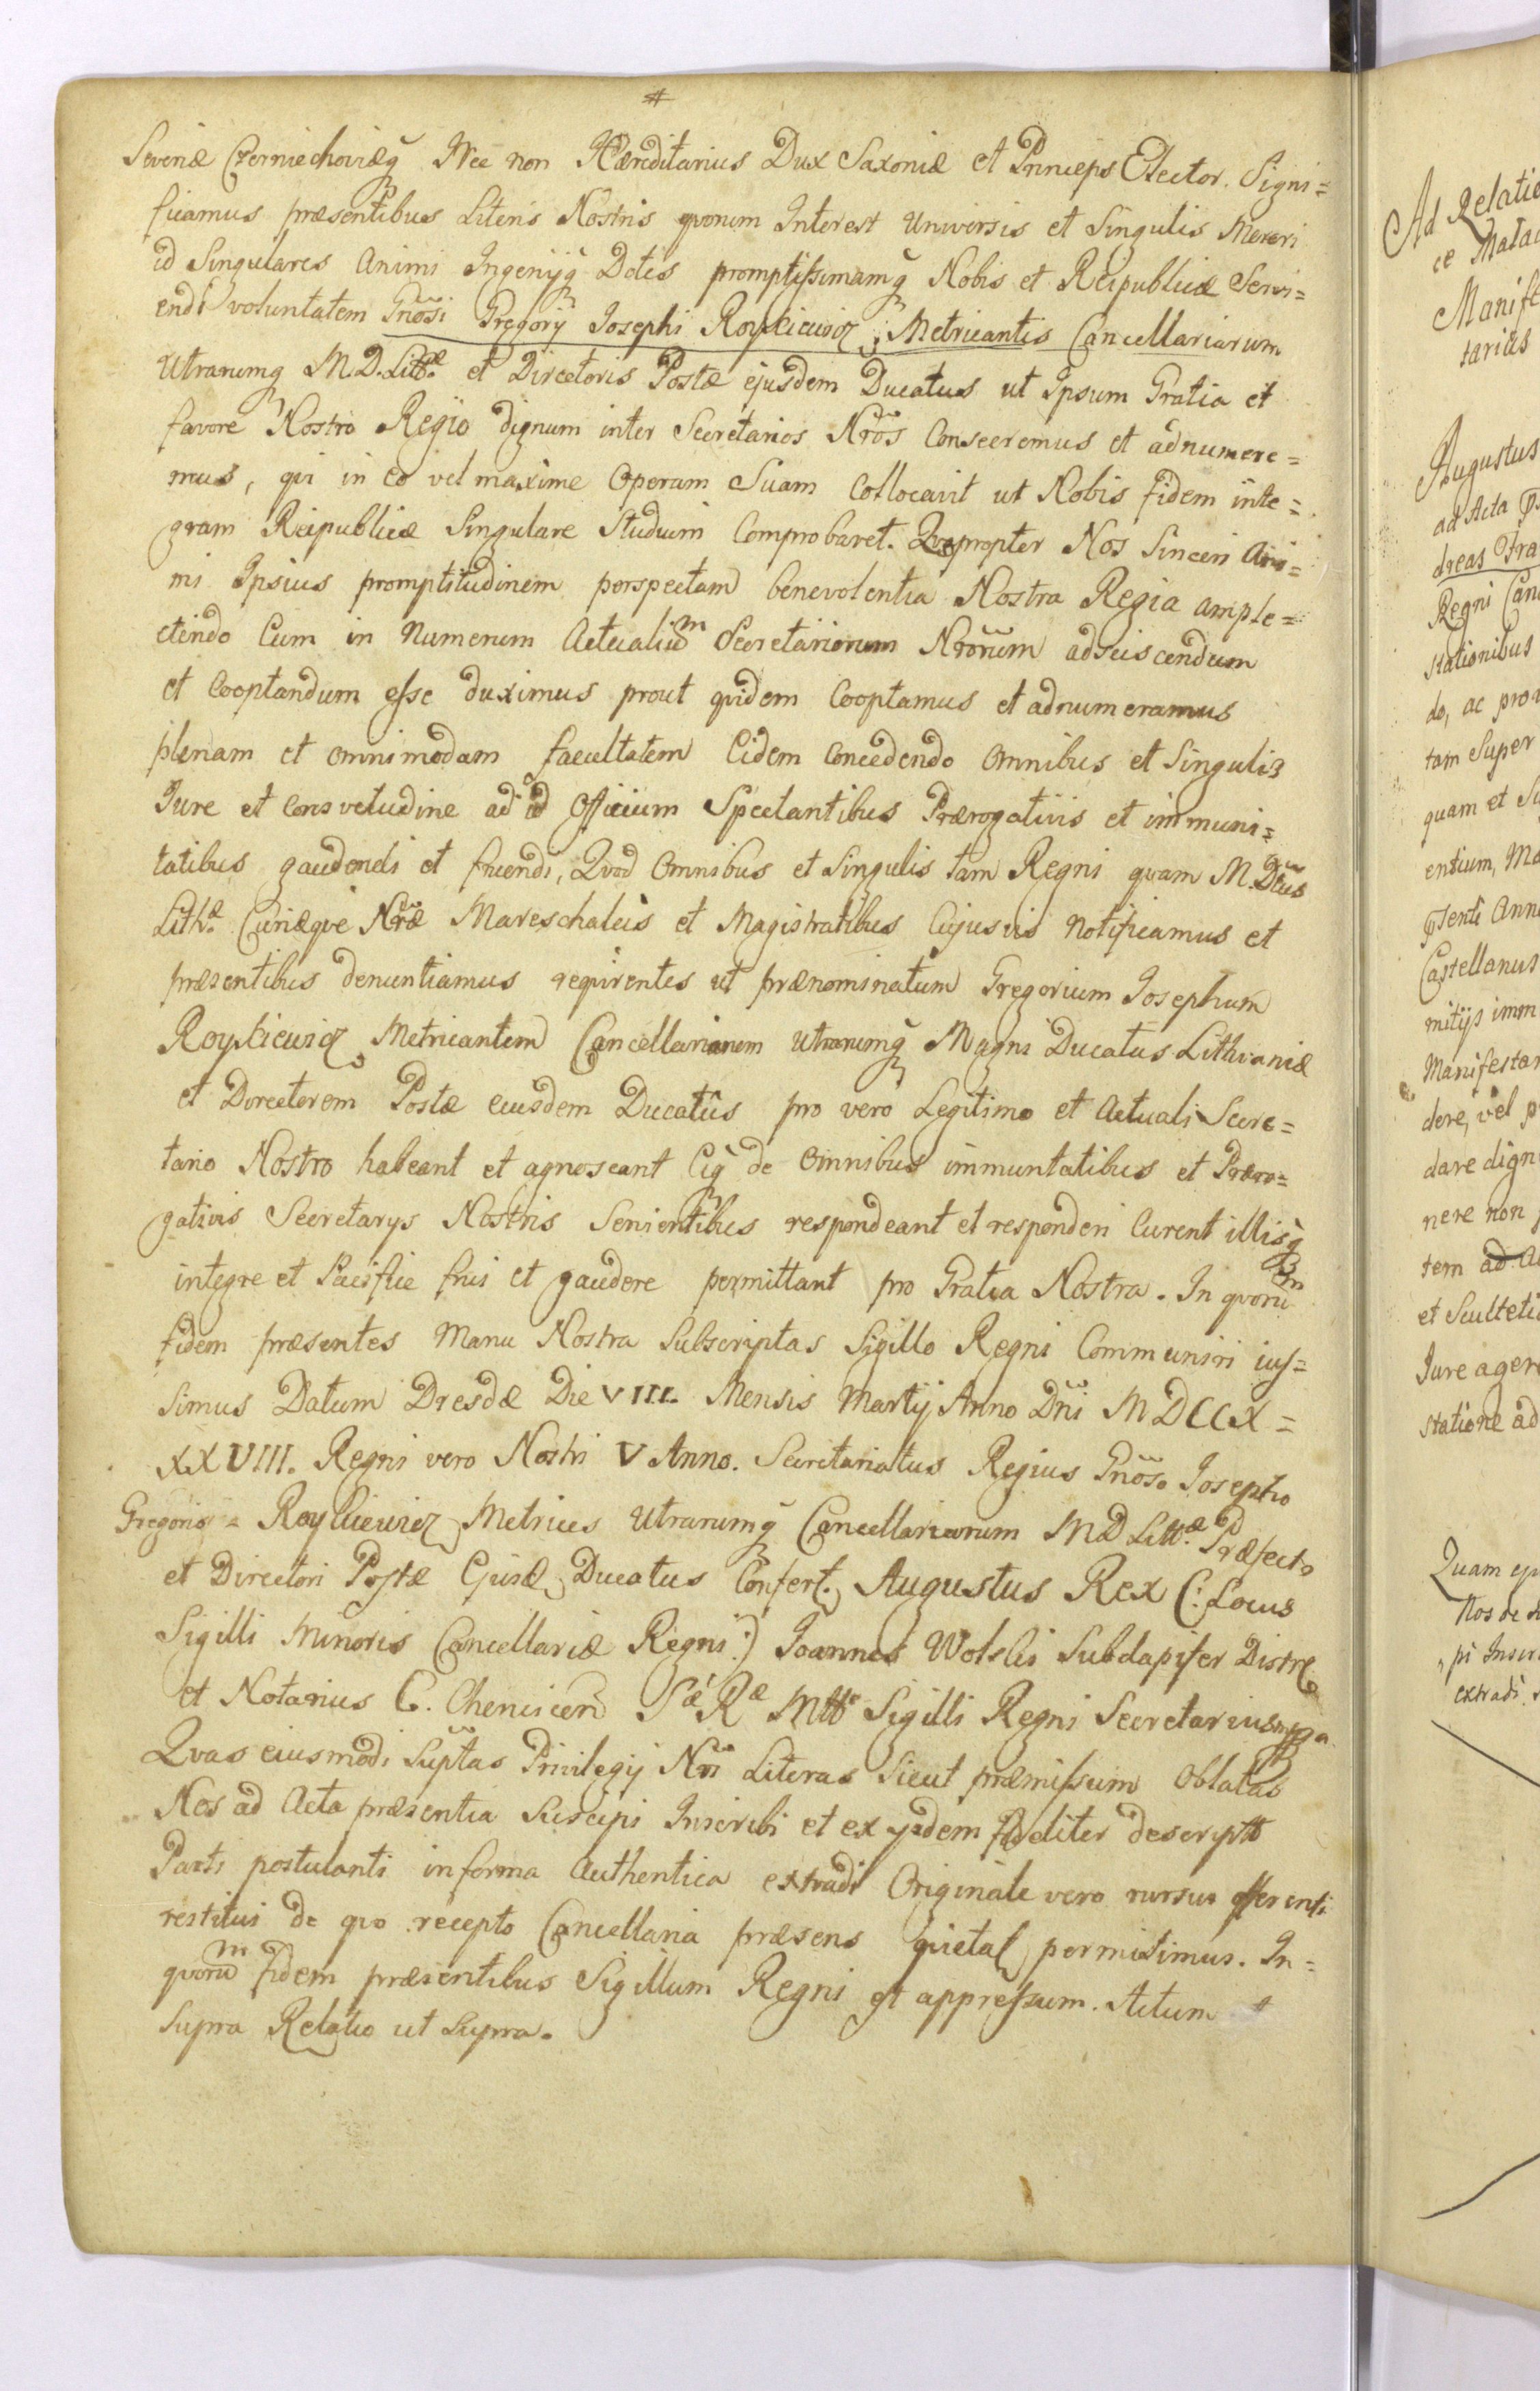 #
Severiæ Czerniechoviæq̃ Nec non Hæreditarius Dux Saxoniæ et Princeps Elector. Signi=
ficamus præsentibus Literis Nostris quorum Interest Universis et Singulis Mereri
id Singulares Animi Ingenijq̃ Dotes promptissimamq̃ Nobis et Reipublicæ Servi=
endi voluntatem Gnõsi Gregorij Josephi Roykiewicz, Metricantis Cancellariarum
Utrarumq̃ M. D. Lithæ et Directoris Postæ ejusdem Ducatus ut Ipsum Gratia et
favore Nostro Regio dignum inter Secretarios Nrõs Conseremus et adnumere=
mus, qui in eo vel maxime Operam Suam Collocavit ut Nobis fidem inte=
gram Reipublicæ Singulare Studium Comprobaret. Qvapropter Nos Sinceri Ani=
mi Ipsius promptitudinem perspectam benevolentia Nostra Regia ample=
ctendo Eum in Numerum Actualium Secretariorum Nrõrum adsciscendum
et Cooptandum esse duximus prout quidem Cooptamus et adnumeramus
plenam et omnimodam facultatem Eidem Concedendo Omnibus et Singulis
Jure et Consvetudine ad id Officium Spectantibus Prærogativis et immuni=
tatibus gaudendi et fruendi, Qvod Omnibus et Singulis tam Regni quam M. Dtũs
Lithæ Curiæqve Nræ̃ Mareschalcis et Magistratibus Cujusvis Notificamus et
præsentibus denuntiamus reqvirentes ut prænominatum Gregorium Josephum
Roykiewicz Metricantem Cancellariarum Utrarumq̃ Magni Ducatus Lithvaniæ
et Directorem Postæ eiusdem Ducatûs pro vero Legitimo et Actuali Secre=
tario Nostro habeant et agnoscant Eiq̃ de Omnibus immuntatibus et Præro=
gativis Secretarys Nostris Servientibus respondeant et responderi Curent illisq̃
integre et Pacifice frui et gaudere permittant pro Gratia Nostra. In qvorum
fidem præsentes Manu Nostra Subscriptas Sigillo Regni Communiri ius=
simus Datum Dresdæ Die VIII. Mensis Martij Anno Dñi MDCCX=
XXVIII. Regni vero Nostri V Anno. Secretariatus Regius Gnõso Josepho
Gregorio = Roykiewicz Metrices Utrarumq̃ Cancellariarum MD Litth.æ Præfecto
et Directori Postæ Ejusd Ducatus Confert. Augustus Rex (: Locus
Sigilli Minoris Cancellariæ Regni :) Joannes Wolski Subdapifer Distr.
et Notarius C. Chencicen Sæ Ræ Mtts Sigilli Regni Secretarius mppa
Qvas eiusmodi Suptas Privilegij Nri Literas Sicut præmissum Oblatas
Nos ad Acta præsentia Suscipi Inscribi et ex ysdem fideliter descriptt
Parti postulanti in forma Authentica extradi Originale vero rursus offerenti
restitui de qvo recepto Cancellaria præsens qvietat permisimus. In=
qvorum fidem præsentibus Sigillum Regni est appressum. Actum ut
Supra Relatio ut Supra.
Ad Relatio
Manife
tarias
Augustus
ad Acta
dreas Fra
Regni Can
stationibus
do, ac pro
tam Super
quam et
entium,
Castellanus
mitijs imm
Manifestar
dere, vel p
dare dign
nere non
tem ad
et Sculteti
Jure agere
statione ad
Quam
Nos
extradi